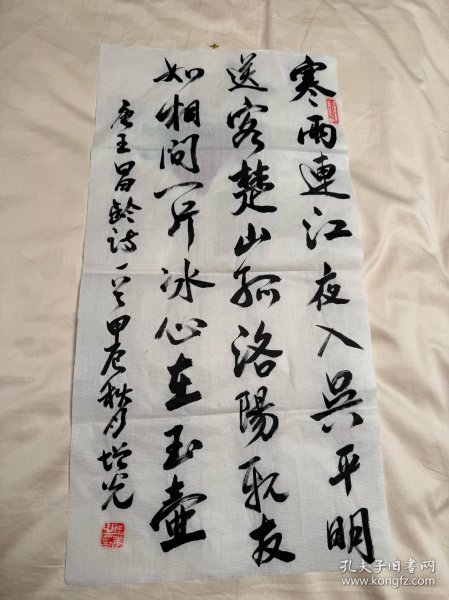 寒雨連江夜入吳平明
送客楚山孤洛陽親友
如相問一片冰心在玉壺
唐王昌齡詩一首甲辰秋月增光
孔夫子旧书网
www.kongfz.com